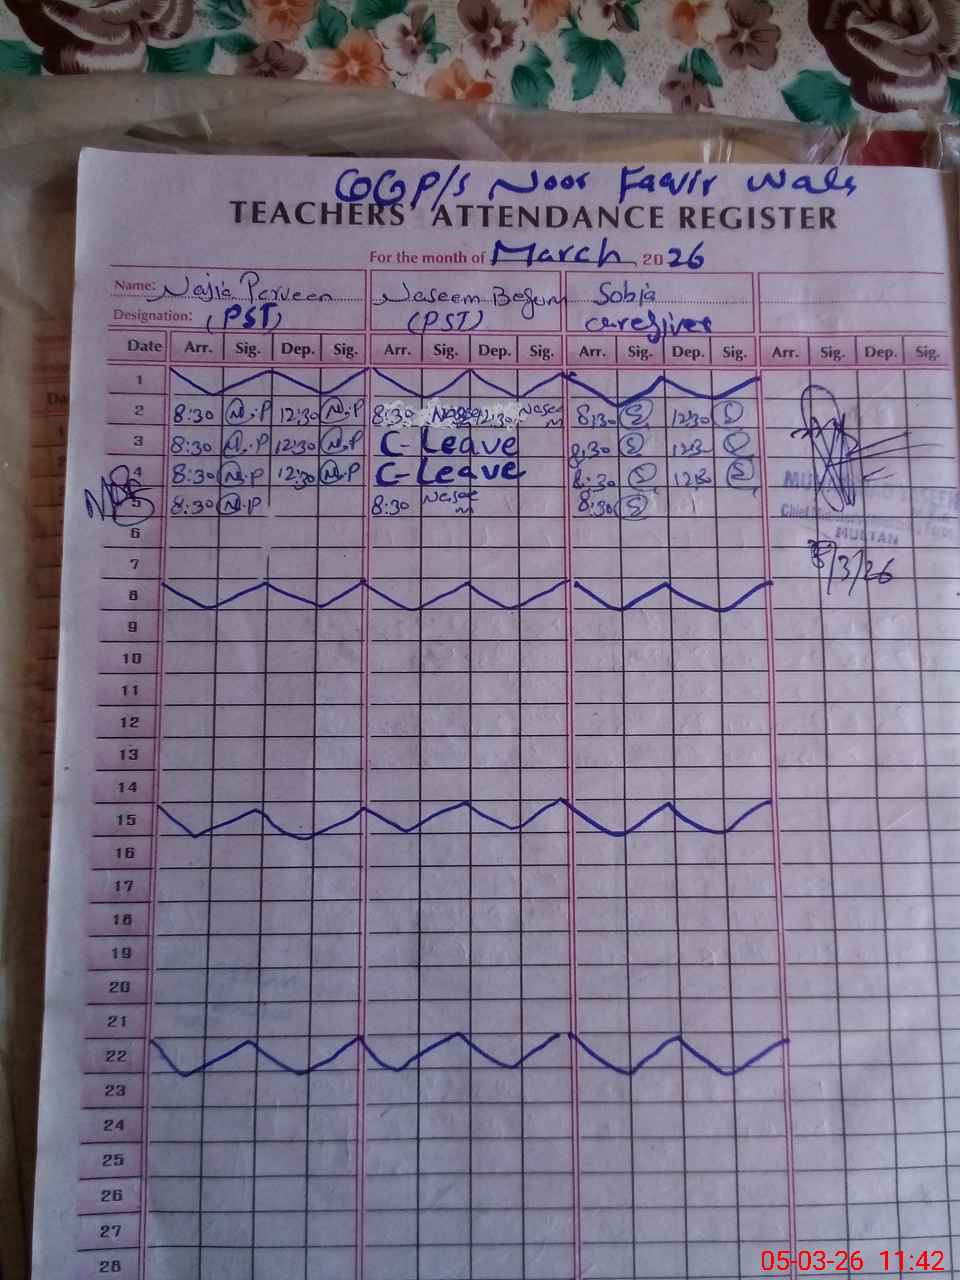 GGP/S Noor Faqir Wala
TEACHERS ATTENDANCE REGISTER
For the month of March 2026
Name: Najia Parveen Naseem Begum Sobia
Designation: (PST) (PST) caregiver
Date Arr. Sig. Dep. Sig. Arr. Sig. Dep. Sig. Arr. Sig. Dep. Sig. Arr. Sig. Dep. Sig.
1
2 8:30 N.P 12:30 N.P 8:30 Naseem 12:30 Naseem 8:30 S 12:30 S
3 8:30 N.P 12:30 N.P C-Leave 8:30 S 12:30 S
4 8:30 N.P 12:30 N.P C-Leave 8:30 S 12:30 S
5 8:30 N.P 8:30 Naseem 8:30 S
MULTAN
6
7
5/3/26
8
9
10
11
12
13
14
15
16
17
18
19
20
21
22
23
24
25
26
27
28
05-03-26 11:42